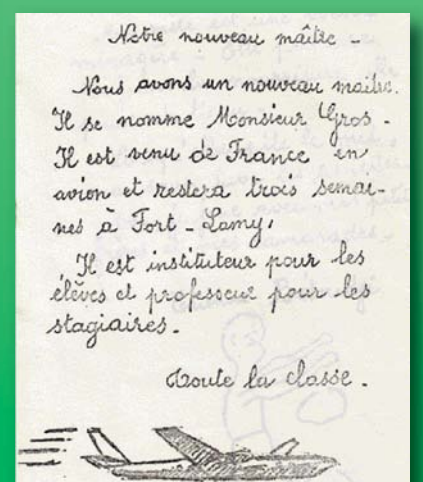 Notre nouveau maître -
Nous avons un nouveau maître.
Il se nomme Monsieur Gros -
Il est venu de France en
avion et restera trois semai-
nes à Fort-Lamy.
Il est instituteur pour les
élèves et professeur pour les
stagiaires -
Toute la classe -